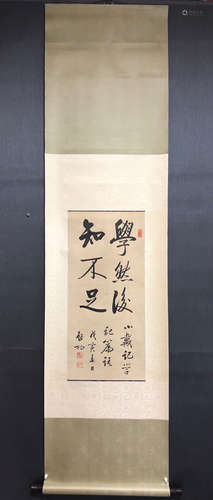 學然後
知不足
小戴記學
記篇語
戊寅春日
啟功